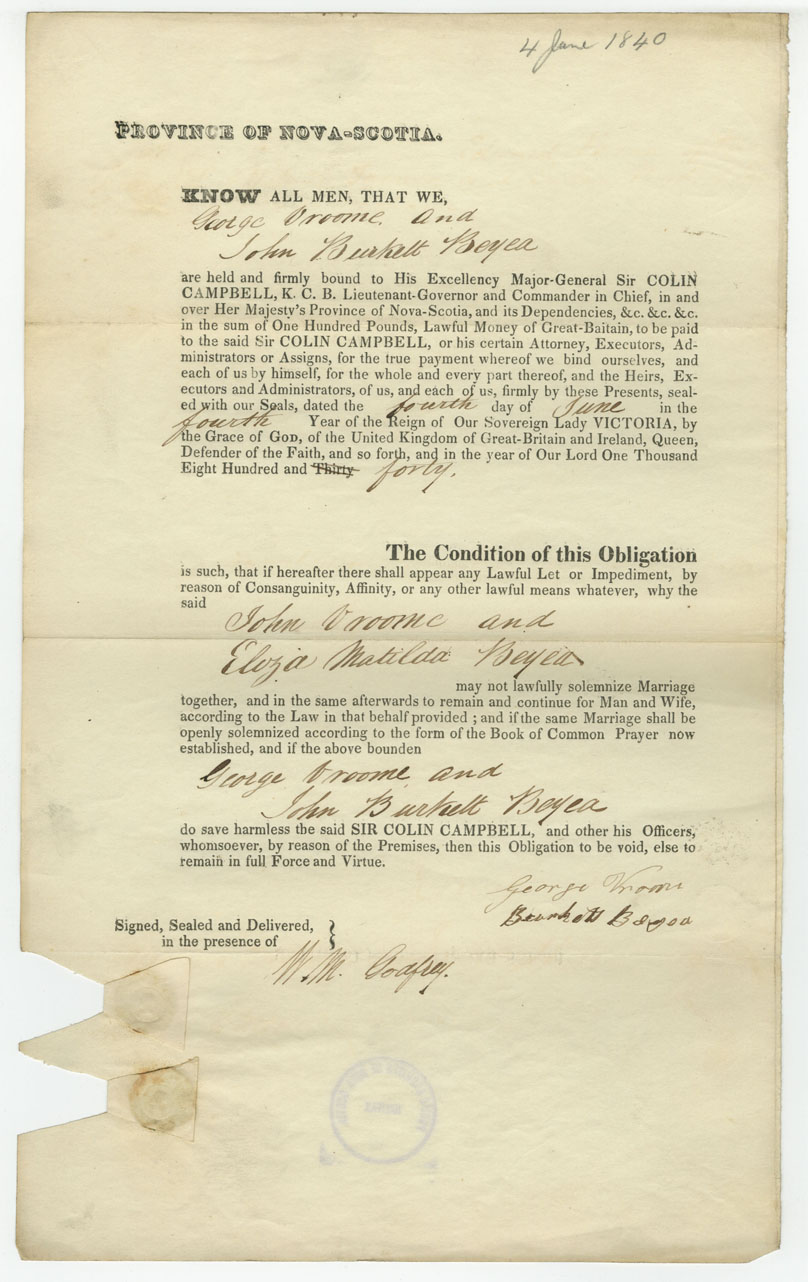 4 June 1840
PROVINCE OF NOVA-SCOTIA.
KNOW ALL MEN, THAT WE,
George Vroome and
John Burkett Beyea
are held and firmly bound to His Excellency Major-General Sir COLIN
CAMPBELL, K. C. B. Lieutenant-Governor and Commander in Chief, in and
over Her Majesty's Province of Nova-Scotia, and its Dependencies, &c. &c. &c.
in the sum of One Hundred Pounds, Lawful Money of Great-Baitain, to be paid
to the said Sir COLIN CAMPBELL, or his certain Attorney, Executors, Ad-
ministrators or Assigns, for the true payment whereof we bind ourselves, and
each of us by himself, for the whole and every part thereof, and the Heirs, Ex-
ecutors and Administrators, of us, and each of us, firmly by these Presents, seal-
ed with our Seals, dated the fourth day of June in the
fourth Year of the Reign of Our Sovereign Lady VICTORIA, by
the Grace of GOD, of the United Kingdom of Great-Britain and Ireland, Queen,
Defender of the Faith, and so forth, and in the year of Our Lord One Thousand
Eight Hundred and Thirty forty.
The Condition of this Obligation
is such, that if hereafter there shall appear any Lawful Let or Impediment, by
reason of Consanguinity, Affinity, or any other lawful means whatever, why the
said
John Vroome and
Eliza Matilda Beyea
may not lawfully solemnize Marriage
together, and in the same afterwards to remain and continue for Man and Wife,
according to the Law in that behalf provided ; and if the same Marriage shall be
openly solemnized according to the form of the Book of Common Prayer now
established, and if the above bounden
George Vroome and
John Burkett Beyea
do save harmless the said SIR COLIN CAMPBELL, and other his Officers,
whomsoever, by reason of the Premises, then this Obligation to be void, else to
remain in full Force and Virtue.
George Vroom
Burkett Beyea
Signed, Sealed and Delivered,
in the presence of
W. M. Godfrey.